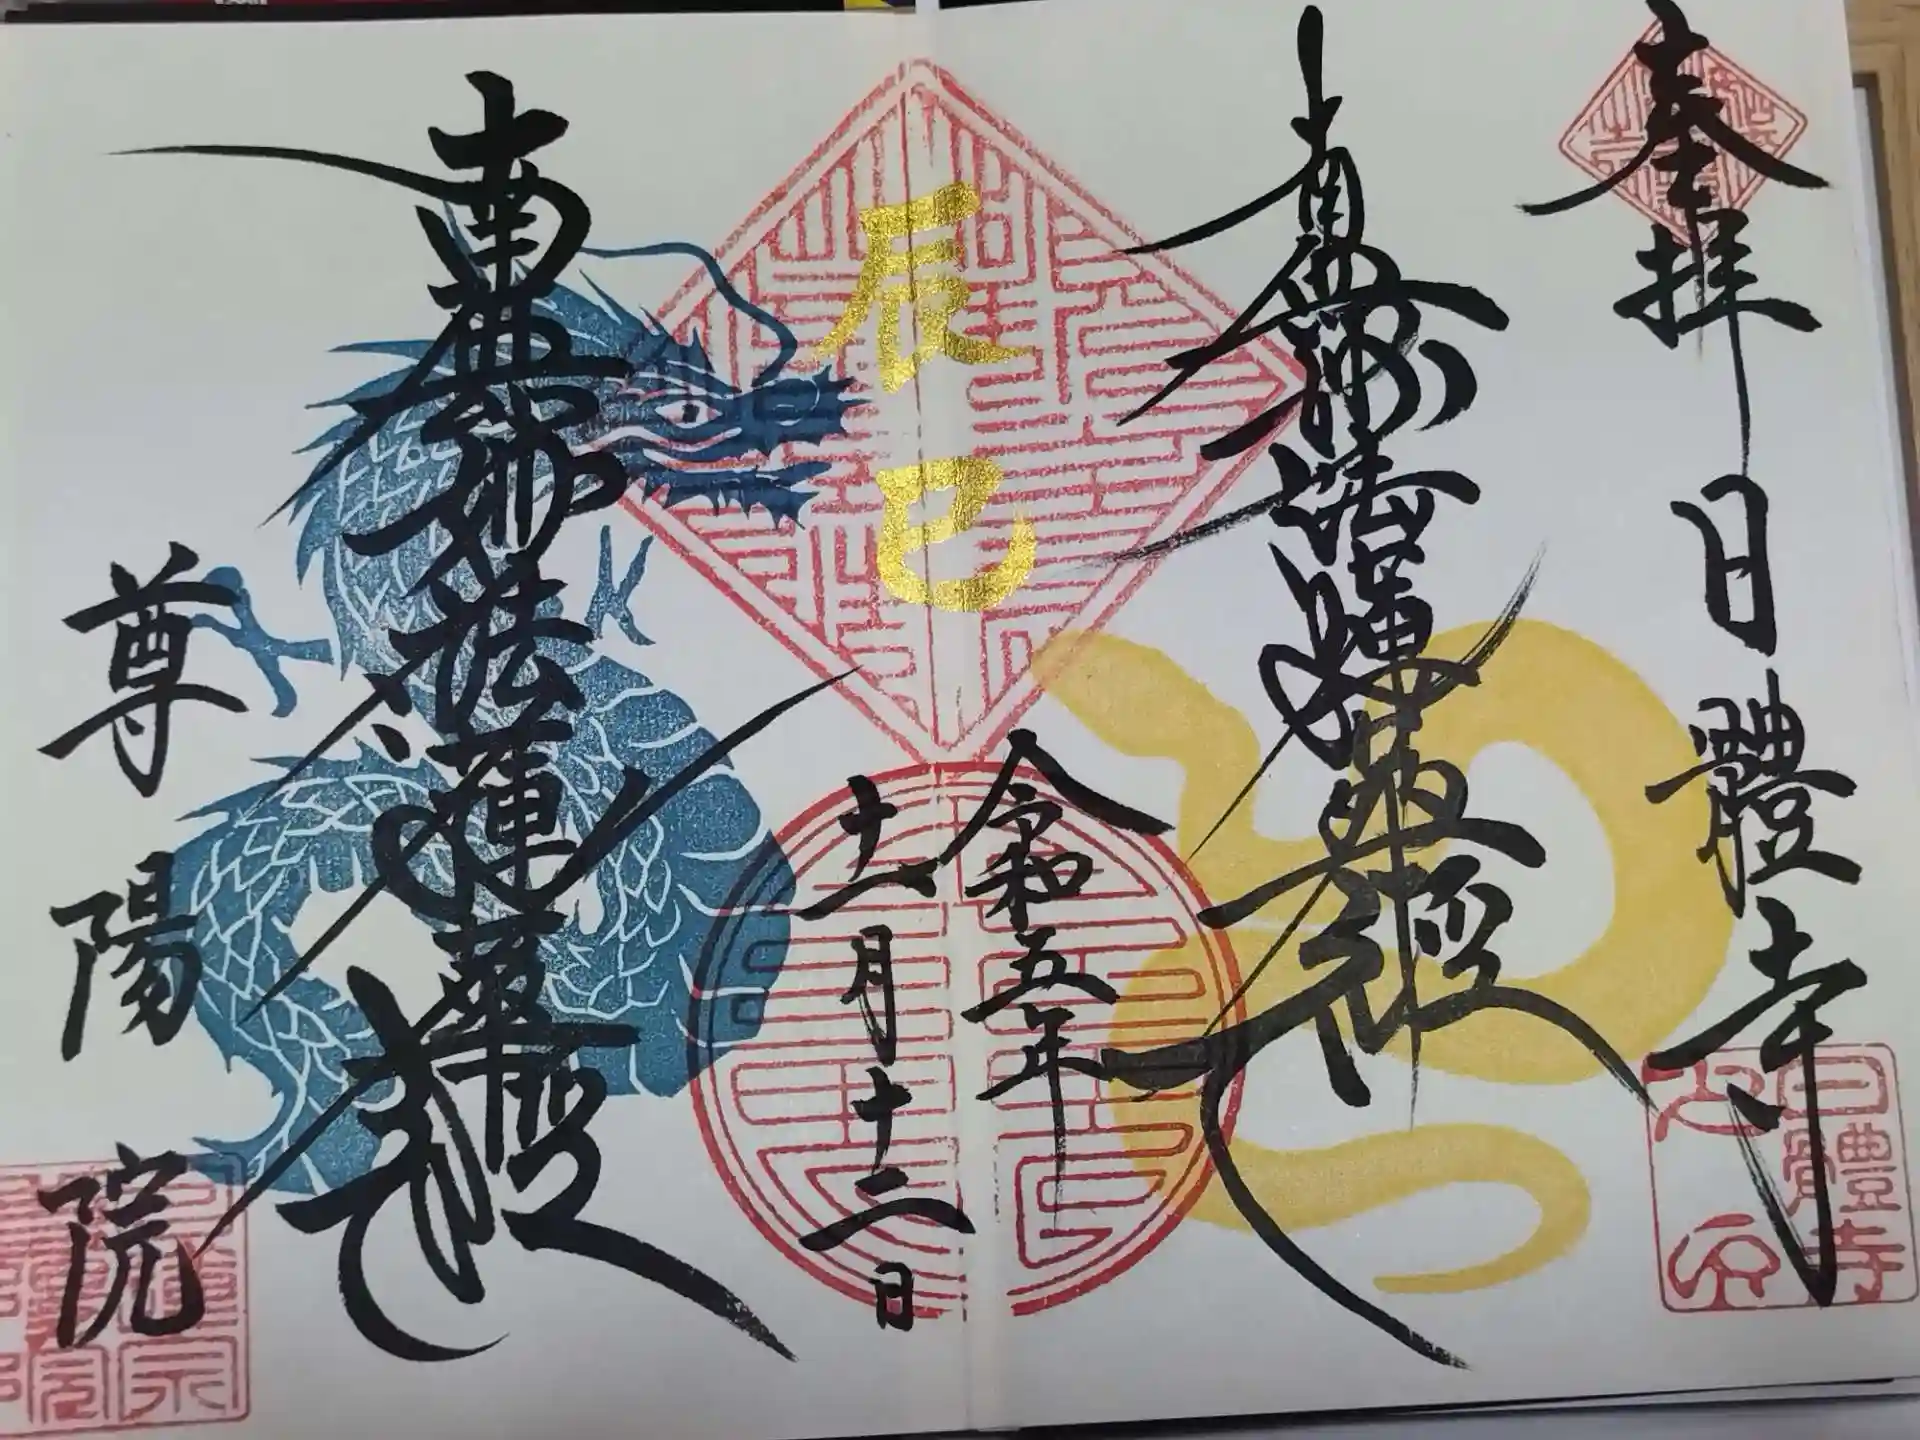 奉拝
日體寺
南無妙法蓮華経
令和五年
十一月十二日
辰巳
南無妙法蓮華経
尊陽院
日體寺